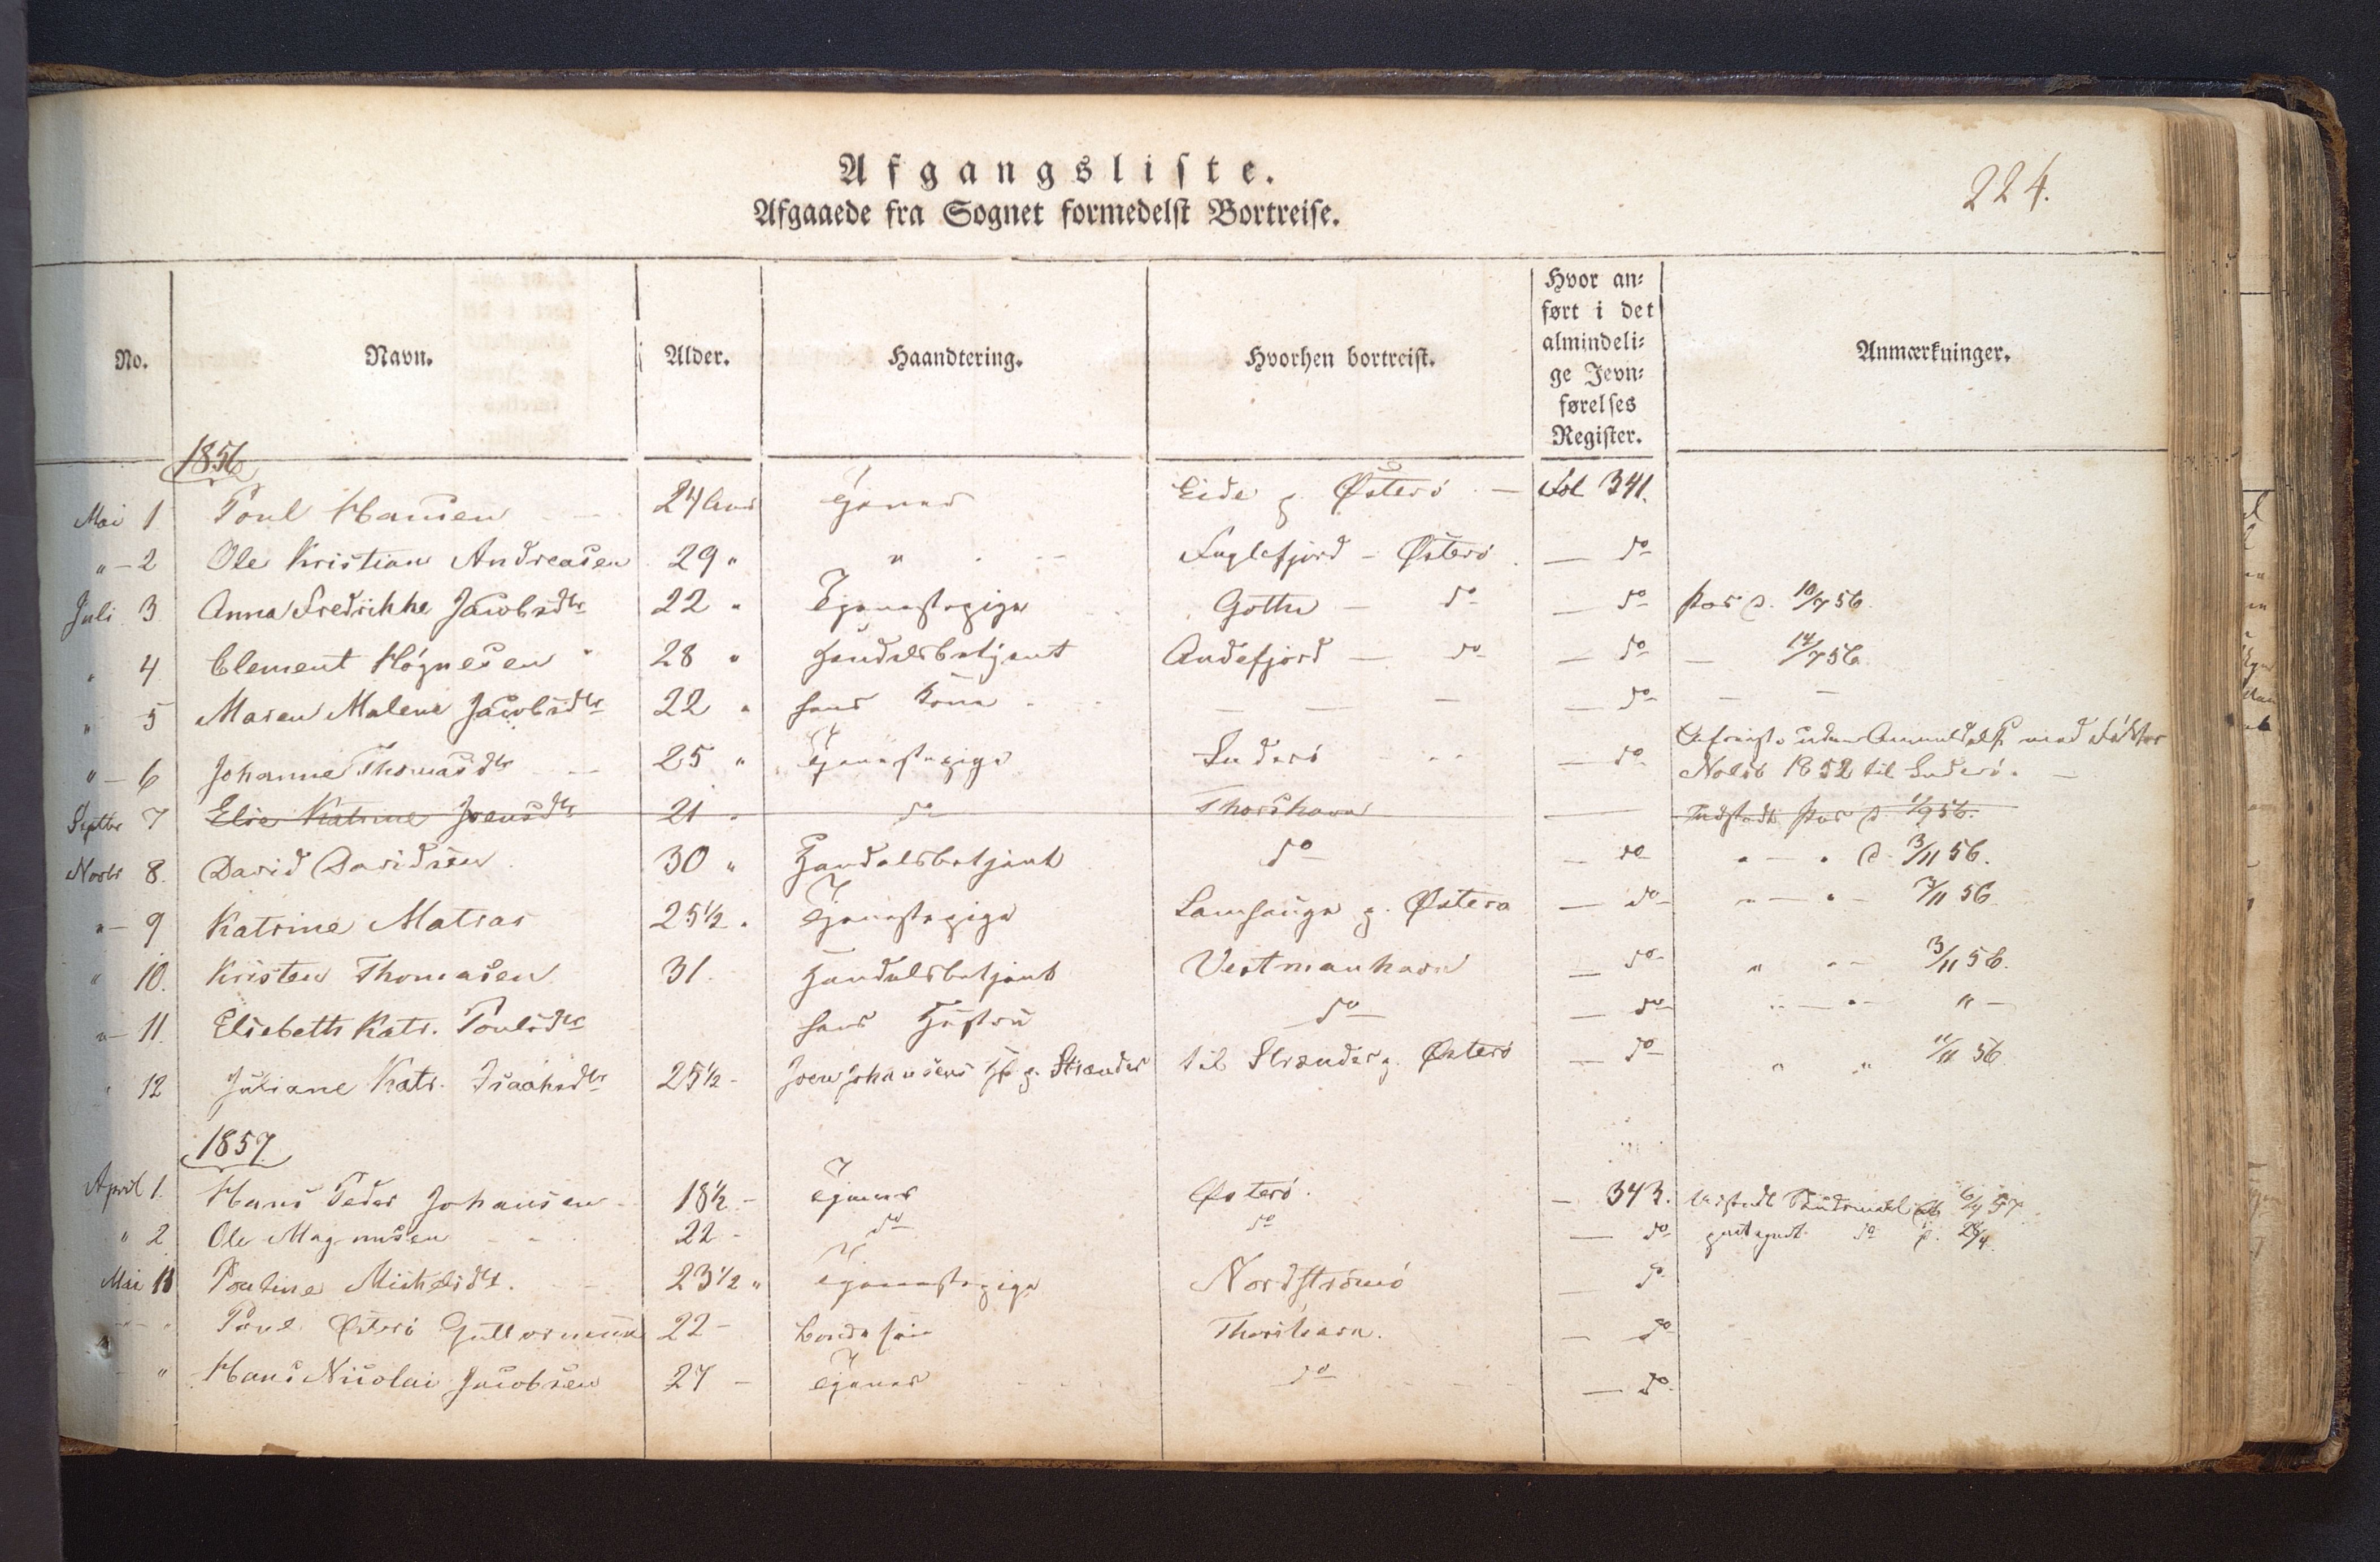 Afgangsliste.
Afgaaede fra Sognet formedelst Bortreise.
224.
No. Navn. Alder. Haandtering. Hvorhen bortreist. Hvor an- ført i det almindeli- ge Jevn- førelses Register. Anmærkninger.
1856
Mai 1 Poul Hansen 24 Aar Tjener Eide p. Østerø — Fol 341.
" — 2 Ole Kristian Andreasen 29 " " Fuglefjord — Østerø — do
Juli 3 Anna Fredrikke Jacobsdtr 22 " Tjenestepige Gøthe — do — do Pas d. 10/7 56.
" 4 Clement Høgnesen 28 " Handelsbetjent Andefjord — do — do — 14/7 56.
" 5 Maren Malene Jacobsdtr 22 " hans Kone — — — — do — —
" — 6 Johanne Thomasdtr 25 " Tjenestepige Suderø — do Afreist uden Anmeldelse med Faktor
Nolsö 1852 til Suderö.
Septbr 7 Else Katrine Joensdtr 21 " do Thorshavn — Udstedt Pas d. 1/9 56.
Novbr 8. David Davidsen 30 " Handelsbetjent do — do " — " d. 3/11 56.
" — 9 Katrine Matras 25½ " Tjenestepige Lamhauge p. Østerø — do " — " — 7/11 56
" 10. Kristen Thomasen 31. Handelsbetjent Vestmanhavn — do " " — 3/11 56.
" — 11. Elsebeth Katr. Poulsdtr hans Hustru do — do " — " — " —
" 12 Juliane Katr. Isaaksdtr 25½ - Joen Johansens H. p. Strænder til Strænder p. Østerø — do " " 11/11 56
1857
April 1. Hans Peder Johansen 18½ - Tjener Østerø. — 343. Udstedt 6/4 57
" 2 Ole Magnussen 22 - do do — do do 28/4.
Mai 11 Pouline Michelsdtr. 23½ " Tjenestepige Nordstrømø — do
" " Poul Østerø Guttormsen 22 - Bondesøn Thorshavn. — do
" Hans Nicolai Jacobsen 27 — Tjener do — do